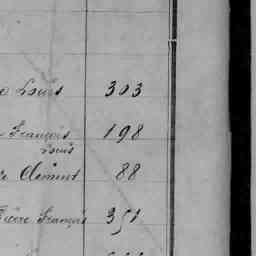 Louis 303
François 198
Louis
Clément 88
Pierre François 351